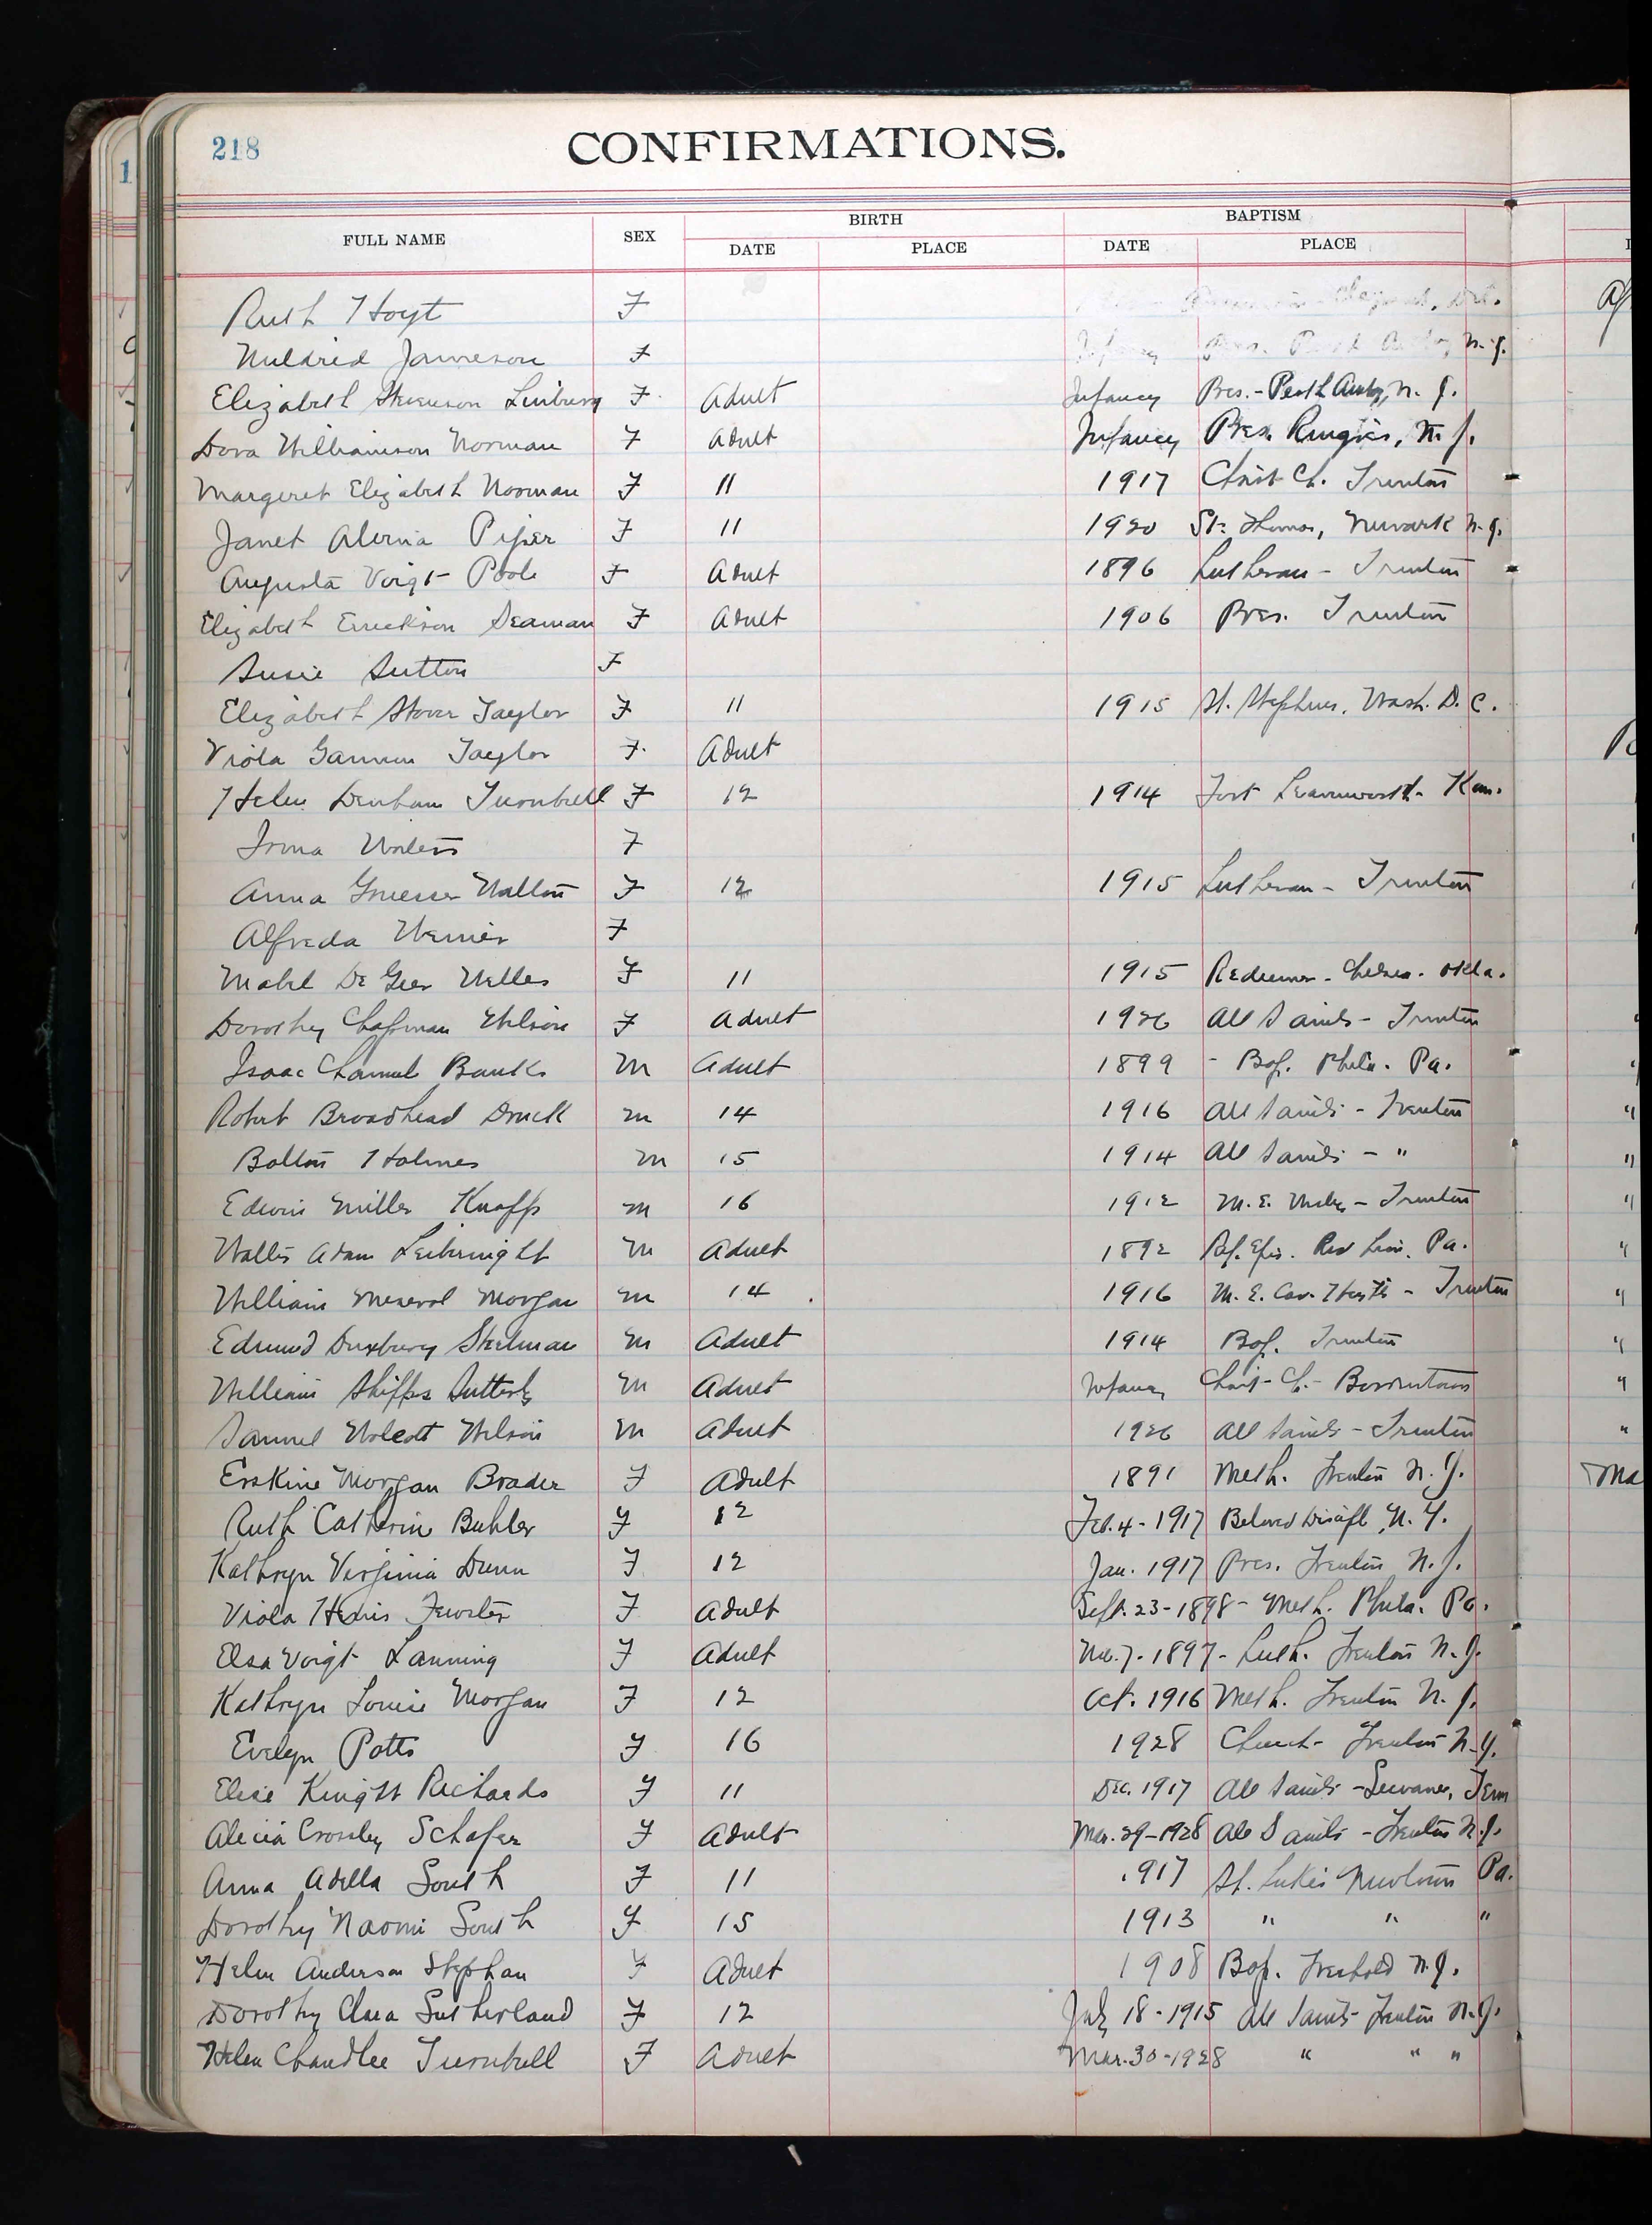 218
CONFIRMATIONS.
FULL NAME SEX BIRTH BAPTISM
DATE PLACE DATE PLACE
Ruth Hoyt F
Mildred Jameson F N. J.
Elizabeth Stevenson F. Adult Infancy Pres. - Perth Amboy, N. J.
Dora Williamson Norman F Adult Infancy Pres. Ringoes, N. J.
Margeret Elizabeth Norman F 11 1917 Christ Ch. Trenton
Janet Piper F 11 1920 St. Thomas, Newark N. J.
Augusta Voigt Poole F Adult 1896 Lutheran - Trenton
Elizabeth Errickson Seaman F Adult 1906 Pres. Trenton
Susie Sutton F
Elizabeth Stover Taylor F 11 1915 St. Stephens, Wash. D. C.
Viola Taylor F. Adult
Helen Denham Turnbull F 12 1914 Fort Leavenworth - Kan.
Irma F
Anna Walton F 12 1915 Lutheran - Trenton
Alfreda Werner F
Mabel De Geer Welles F 11 1915 Redeemer - Chelsea - Okla.
Dorothy Chapman Wilson F Adult 1926 All Saints - Trenton
Isaac Banks M Adult 1899 - Bap. Phila. Pa.
Robert Broadhead Druck M 14 1916 All Saints - Trenton "
Bolton Holmes M 15 1914 All Saints - " "
Edwin Miller Knapp M 16 1912 M. E. - Trenton "
Adam Leibenight M Adult 1892 Pa. "
William Morgan M 14 1916 M. E. - Trenton "
Edmund Duxbury Steelman M Adult 1914 Bap. Trenton "
William Shipps Sutterly M Adult Infancy Christ Ch. - Bordentown "
Samuel Wolcott Wilson M Adult 1926 All Saints - Trenton "
Erskine Morgan Brader F Adult 1891 Meth. Trenton N. J. Ma
Ruth Catherine Buhler F 12 Feb. 4 - 1917 Beloved Disciple, N. Y.
Kathryn Virginia Dunn F 12 Jan. 1917 Pres. Trenton N. J.
Viola Fewster F Adult Sept. 23 - 1898 - Meth. Phila. Pa.
Elsa Voigt Lanning F Adult Nov. 7 - 1897 - Luth. Trenton N. J.
Kathryn Louise Morgan F 12 Oct. 1916 Meth. Trenton N. J.
Evelyn Potts F 16 1928 Church - Trenton N. J.
Elise Knight Richards F 11 Dec. 1917 All Saints - Sewanee, Tenn
Alicia Crossley Schafer F Adult Mar. 29 - 1928 All Saints - Trenton N. J.
Anna Adella South F 11 1917 St. Lukes Newtown Pa.
Dorothy Naomi South F 15 1913 " " "
Helen Anderson Stephan F Adult 1908 Bap. Freehold N. J.
Dorothy Clara Sutherland F 12 July 18 - 1915 All Saints - Trenton N. J.
Helen Chandlee Turnbull F Adult Mar. 30 - 1928 " " "